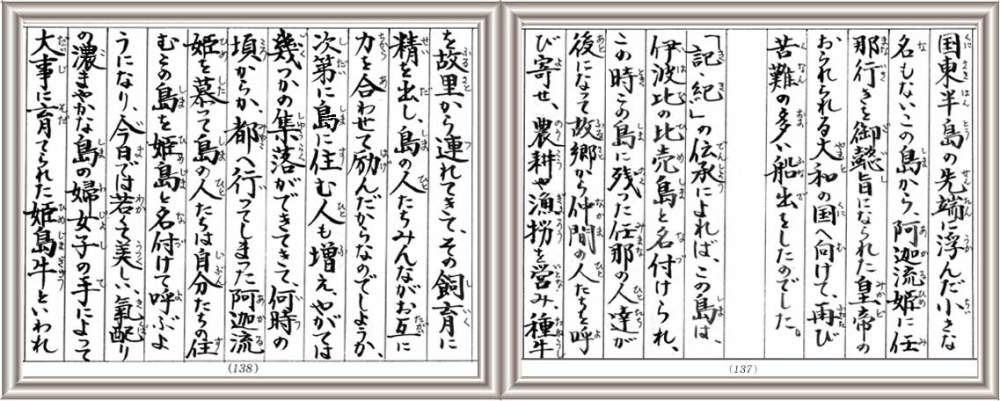 国東半島の先端に浮んだ小さな
名もないこの島から、阿迦流姫に任
那行きを御懿旨になられた皇帝の
おられられる大和の国へ向けて、再び
苦難の多い船出をしたのでした。
「記・紀」の伝承によれば、この島は、
伊波比の比売島と名付けられ、
この時この島に残った任那の人達が
後になって故郷から仲間の人たちを呼
び寄せ、農耕や漁撈を営み、種牛
(137)
を故里から連れてきて、その飼育に
精を出し、島の人たちみんながお互に
力を合わせて励んだからなのでしょうか、
次第に島に住む人も増え、やがては
幾つかの集落ができてきて、何時の
頃からか、都へ行ってしまった阿迦流
姫を慕って島の人たちは自分たちの住
むこの島を姫島と名付けて呼ぶよ
うになり、今日では若くて美しい、氣配り
の濃まやかな島の婦女子の手によって
大事に育てられた姫島牛といわれ
(138)